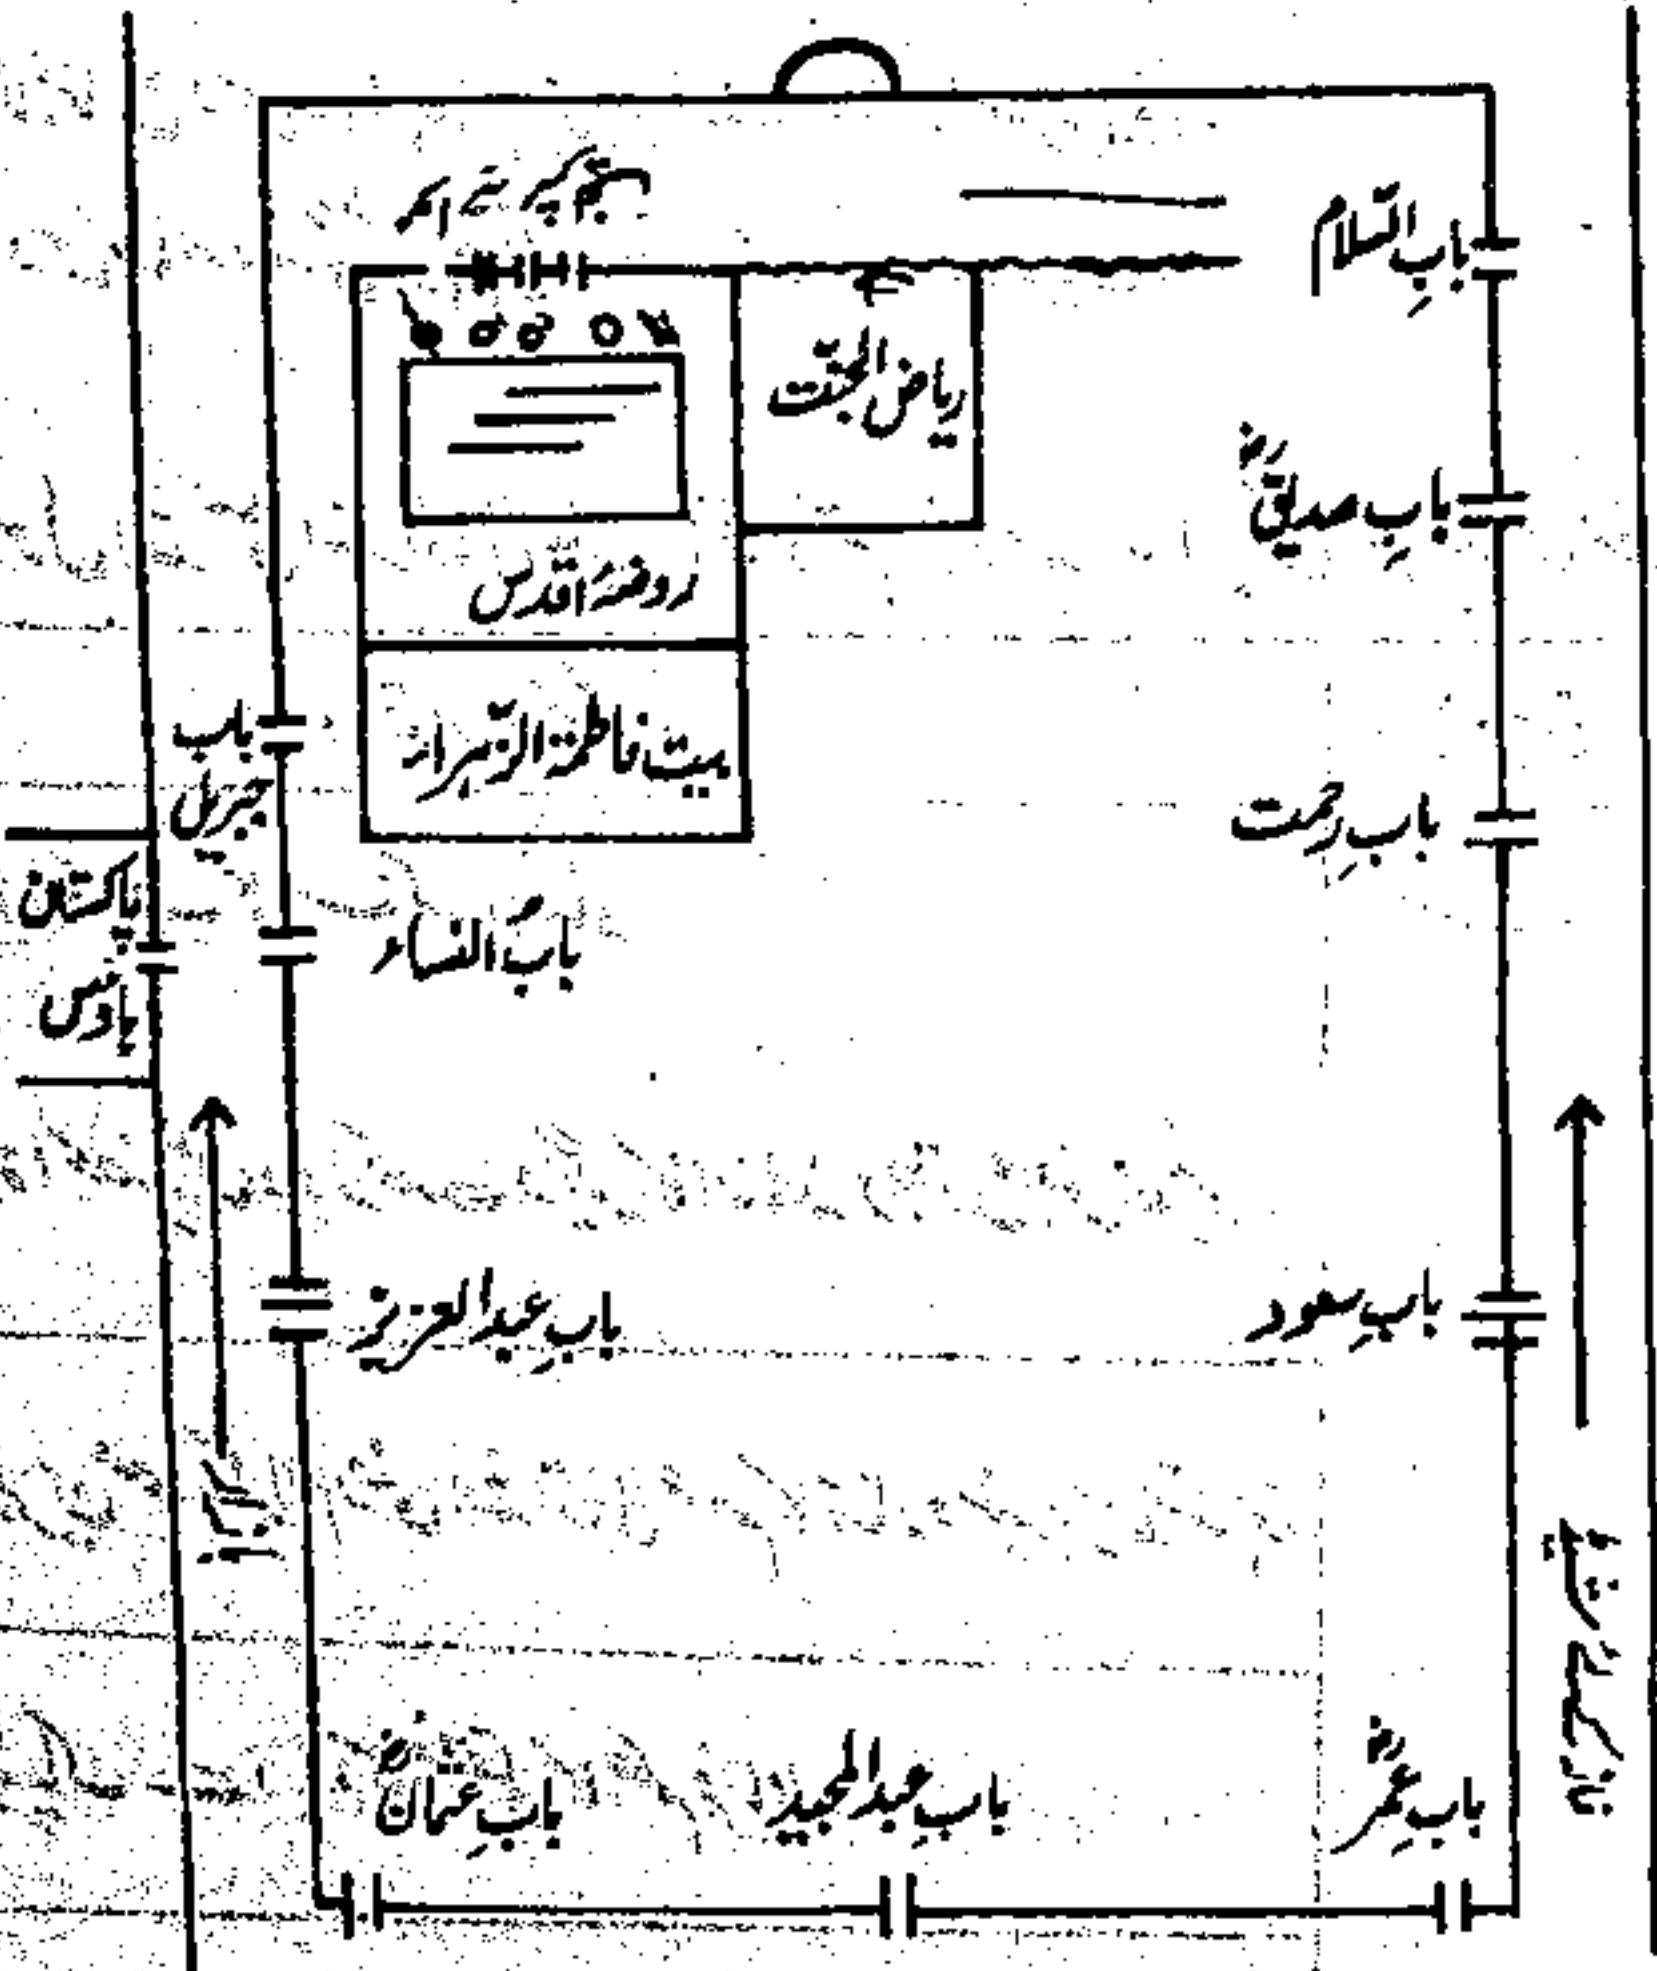 باب السّلام
ریاض الجنّت
باب صدیق رضؓ
روضۂ اقدس
بیت فاطمۃ الزّہراء
باب
جبریل
باب رحمت
پاکستان
ہاؤس
بابُ النساء
باب عبد العزیز
باب سعود
باب عثمان رضؓ
باب عبد المجید
باب عمر رضؓ